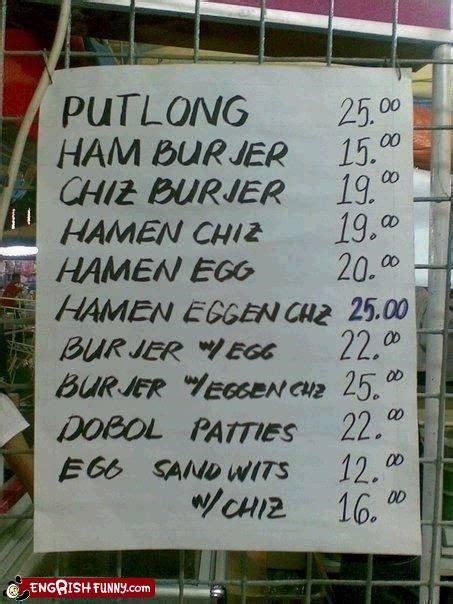 PUTLONG 25.00
HAM BURJER 15.00
CHIZ BURJER 19.00
HAMEN CHIZ 19.00
HAMEN EGG 20.00
HAMEN EGGEN CHZ 25.00
BURJER W/ EGG 22.00
BURJER W/EGGEN CHZ 25.00
DOBOL PATTIES 22.00
EGG SANDWITS 12.00
W/ CHIZ 16.00
ENGRISHFUNNY.COM